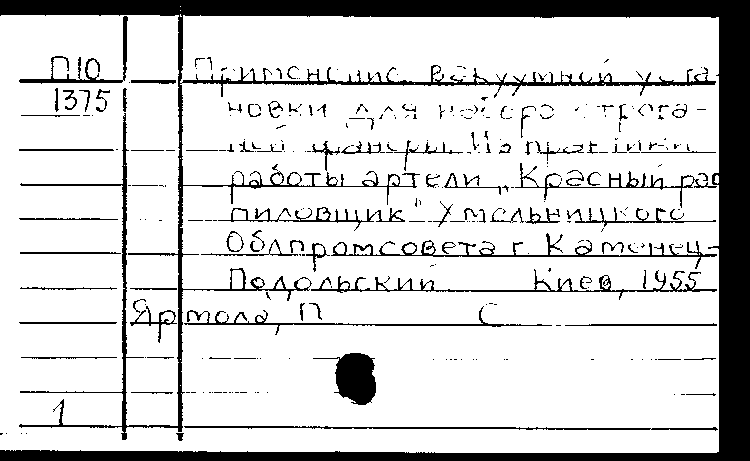 П10 Применение вакуумной уста-
1375 новки для набора строга-
ной фанеры. Из практики
работы артели „Красный рас
пиловщик" Хмельницкого
Облпромсовета г. Каменец-
Подольский Киев, 1955
Ярмола, П С
1